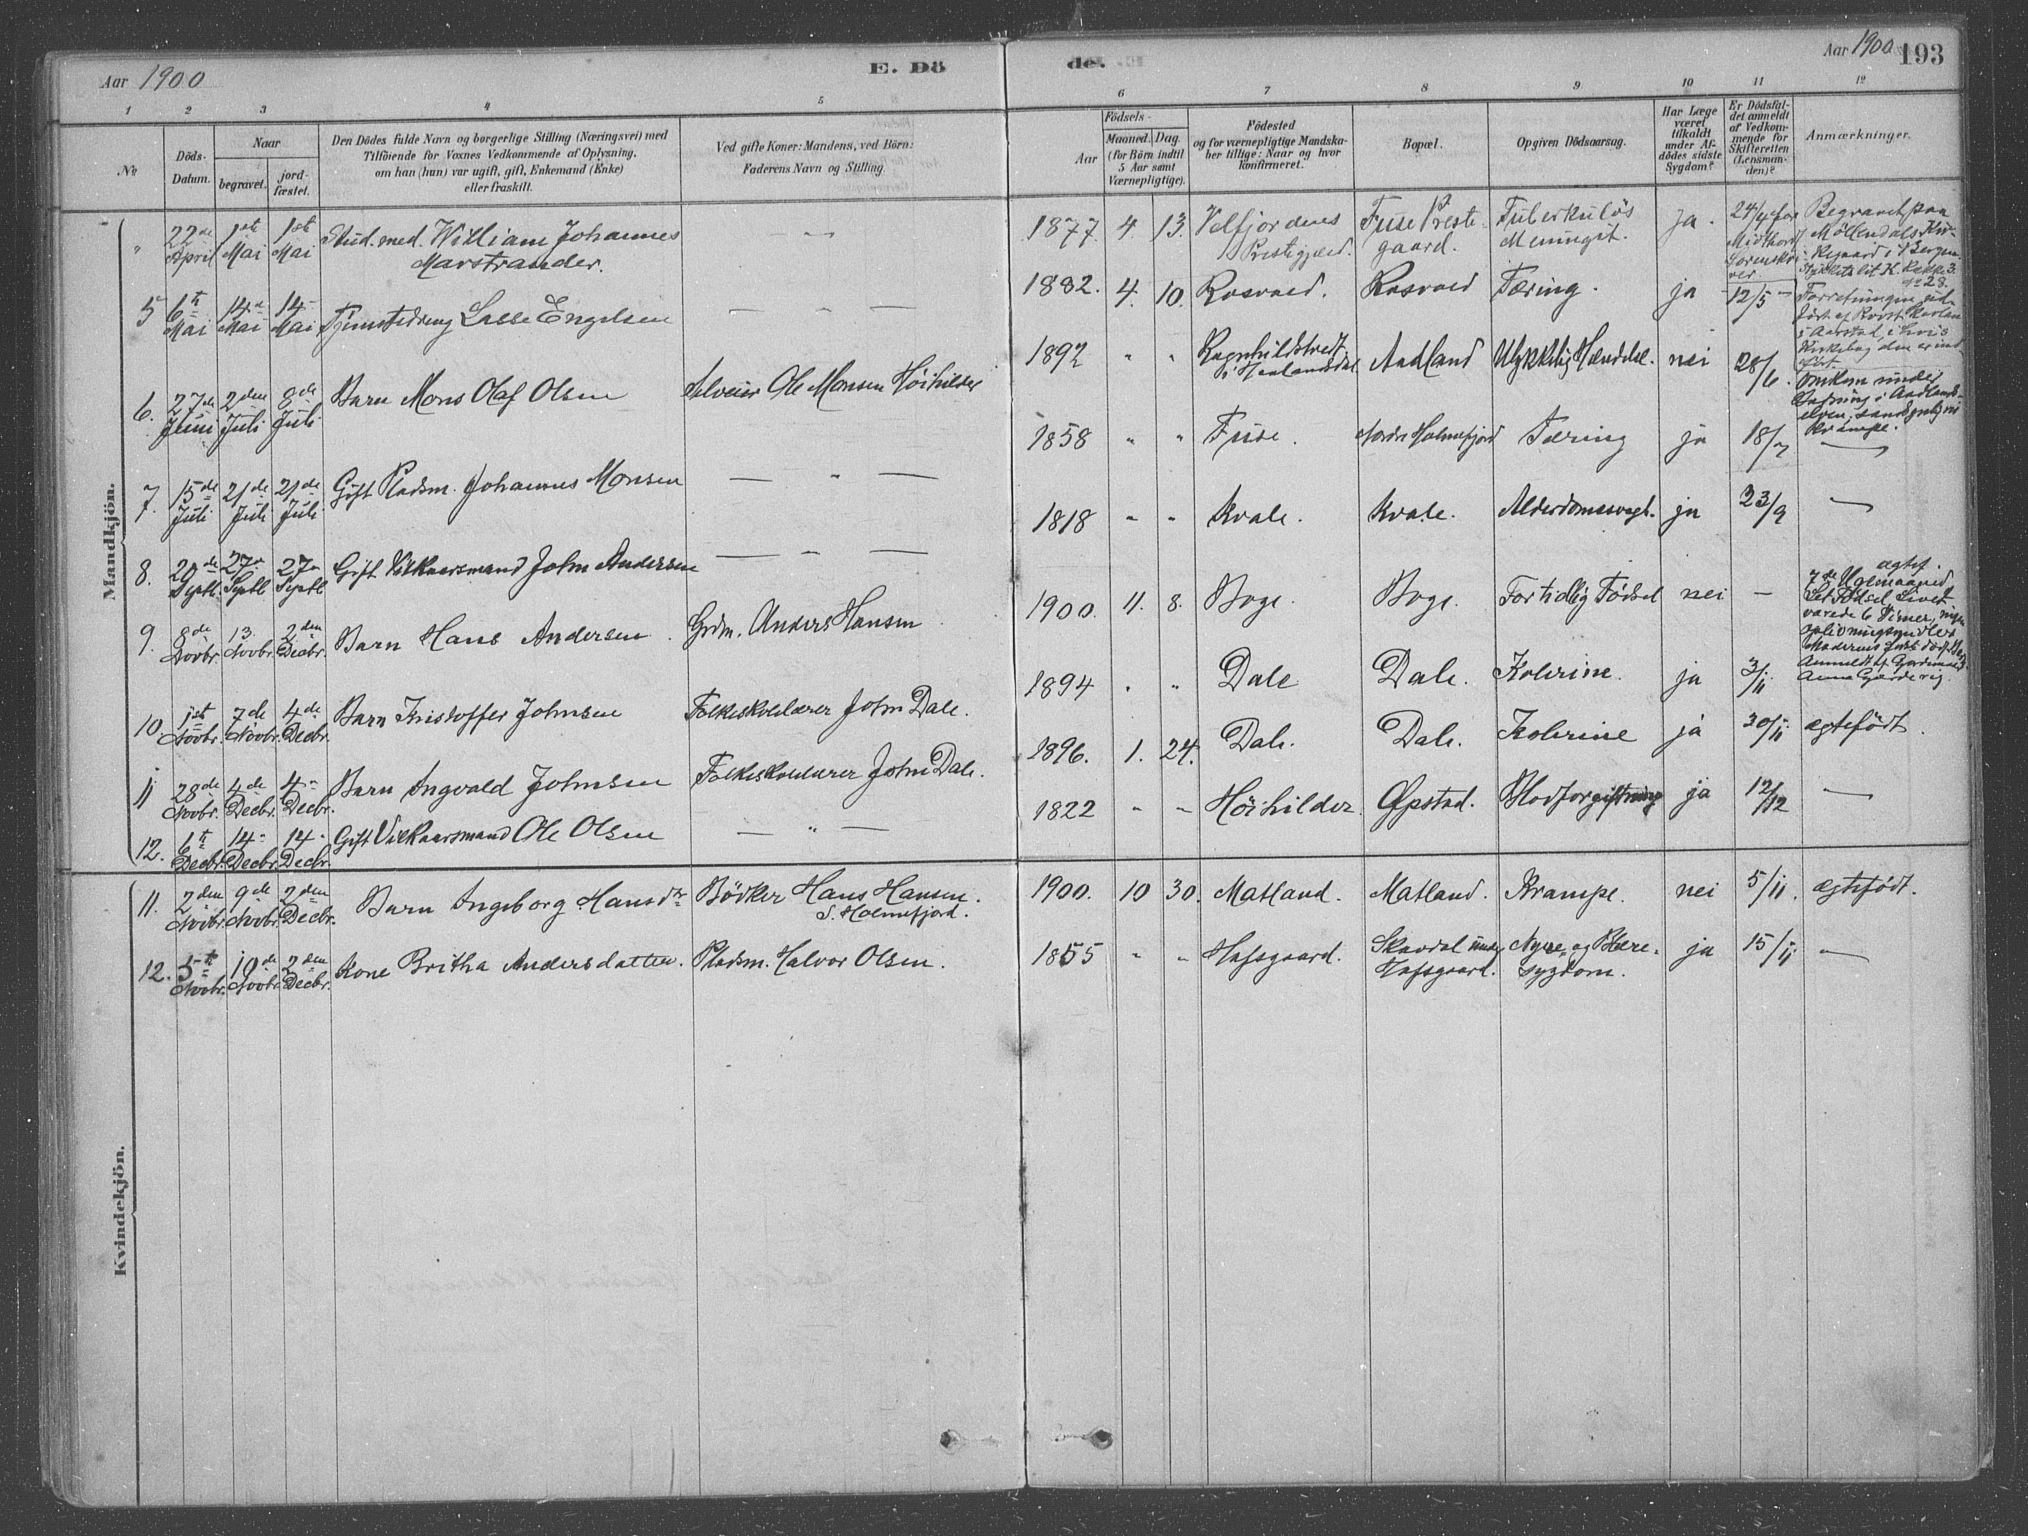 Aar 1900
E. Dö
de.
Aar 1900
193
1 2 3 4 5 6 7 8 9 10 11 12
No
Döds-Datum.
Naar
begravet.
jord-fæstet.
Den Dödes fulde Navn og borgerlige Stilling (Næringsvei) med
Tilföiende for Voxnes Vedkommende af Oplysning,
om han (hun) var ugift, gift, Enkemand (Enke)
eller fraskilt.
Ved gifte Koner: Mandens, ved Börn:
Faderens Navn og Stilling
Födsels-
Aar
Maaned. Dag.
(for Börn indtil
5 Aar samt
Værnepligtige).
Födested
og for værnepligtige Mandska-
ber tillige: Naar og hvor
konfirmeret.
Bopæl.
Opgiven Dödsaarsag.
Har Læge
været
tilkaldt
under Af-
dödes sidste
Sygdom?
Er Dödsfal-
det anmeldt
af Vedkom-
mende for
Skifteretten
(Lensman-
den)?
Anmærkninger.
Mandkjön.
" 22de April 1ste Mai 1ste Mai Stud. med. William Johannes Marstrander. — " — 1877. 4 13. Velfjordens Prestegjæld. Fuse Prestegaard. Tuberkuløs Meningit. ja. 24/4 for Midthord Sorenskriver. Begravet paa Møllendals Kirkegaard i Bergen
5 6te Mai 14de Mai 14- Mai Tjenestedreng Lasse Engelsen — " — 1882. 4. 10. Rosvold. Rosvold Tæring. ja 12/5
6. 27de Juni 2den Juli 8de Juli Barn Mons Olaf Olsen Selveier Ole Monsen Höihilder 1892 " " Ragnhildstvedt i Haalandsdal Aadland Ulykkelig Hændelse. nei 28/6. Omkom under Badning i Aadlandselven, sandsynligvis Krampe.
7. 15de Juli 21de Juli 21de Juli Gift Pladsm. Johannes Monsen — " — 1858 " " Fuse. Nordre Holmefjord Tæring ja 18/7 —
8. 20de Septb 27de Septb 27de Septb Gift Vilkaarsmand John Andersen — " — 1818 " " Kvale. Kvale. Alderdomssvagh. ja 23/9 —
9. 8de Novbr. 13. Novbr. 2den Decbr. Barn Hans Andersen Grdm. Anders Hansen 1900. 11. 8. Boge. Boge. For tidlig Födsel nei — ægtef. Livet varede 6 Timer, Anna Gjerdevig.
10. 1ste Novbr. 7de Novbr. 4de Decbr. Barn Kristoffer Johnsen Folkeskolelærer John Dale. 1894 " " Dale Dale. Kolerine. ja 3/11
11 28de Novbr. 4de Decbr. 4- Decbr. Barn Ingvald Johnsen Folkeskolelærer John Dale. 1896. 1. 24. Dale. Dale. Kolerine ja 30/11 ægtefödt.
12. 6te Decbr. 14- Decbr. 14- Decbr. Gift Vilkaarsmand Ole Olsen — " — 1822 " " Höihilder. Opstad. Blodforgiftning ja 12/12 —
Kvindekjön.
11. 2den Novbr. 9de Novbr. 2den Decbr. Barn Ingeborg Hansdtr Bödker Hans Hansen. S. Holmefjord. 1900. 10 30. Matland. Matland. Krampe. nei 5/11. ægtefödt.
12. 5te Novbr. 10de Novbr. 2den Decbr. Kone Britha Andersdatter. Pladsm. Halvor Olsen. 1855 " " Hafsgaard. Skavdal under Hafsgaard. Nyre- og Blæresygdom. ja 15/11 —